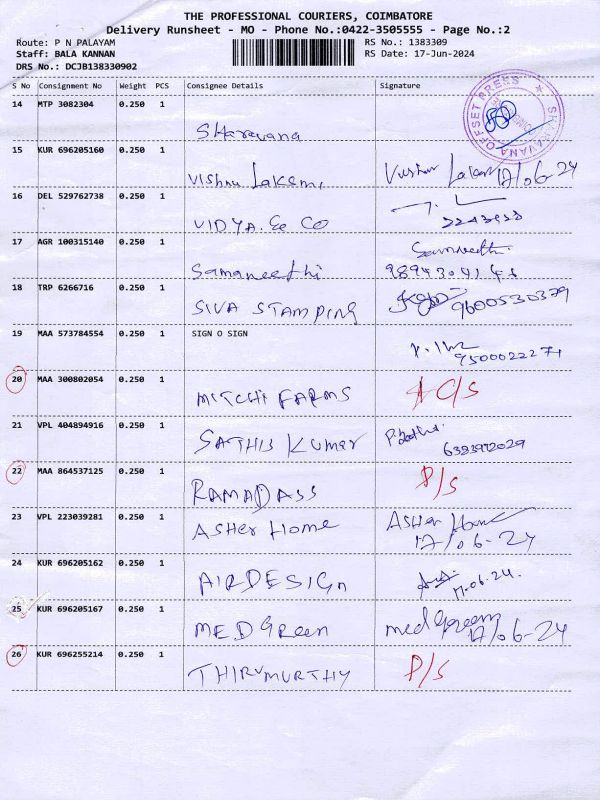 THE PROFESSIONAL COURIERS, COIMBATORE
Delivery Runsheet - MO - Phone No.:0422-3505555 - Page No.:2
Route: P N PALAYAM
Staff: BALA KANNAN
DRS No.: DCJB138330902
RS No.: 1383309
RS Date: 17-Jun-2024
S No Consignment No Weight PCS Consignee Details Signature
14 MTP 3082304 0.250 1
Sharavana
SHARAVANA OFFSET PRESS
15 KUR 696205160 1
Vishnu Laksmi 17/06-24
16 DEL 529762738 0.250 1
VIDYA. & CO
17 AGR 100315140 0.250 1
Samaneethi
18 TRP 6266716 0.250 1
SIVA STAMPING 9600530379
19 MAA 573784554 0.250 1 SIGN O SIGN
9500022271
20 MAA 300802054 0.250 1
MITCHI FARMS C/S
21 VPL 404894916 0.250 1
SATHIS KUMAR 6383972029
22 MAA 864537125 0.250 1
RAMADASS P/S
23 VPL 223039281 0.250 1
ASHER HOME ASHER Home
17/06-24
24 KUR 696205162 0.250 1
AIRDESIGN 17.06.24.
25 KUR 696205167 0.250 1
MEDGREEN medgreen 17/06-24
26 KUR 696255214 0.250 1
THIRUMURTHY P/S